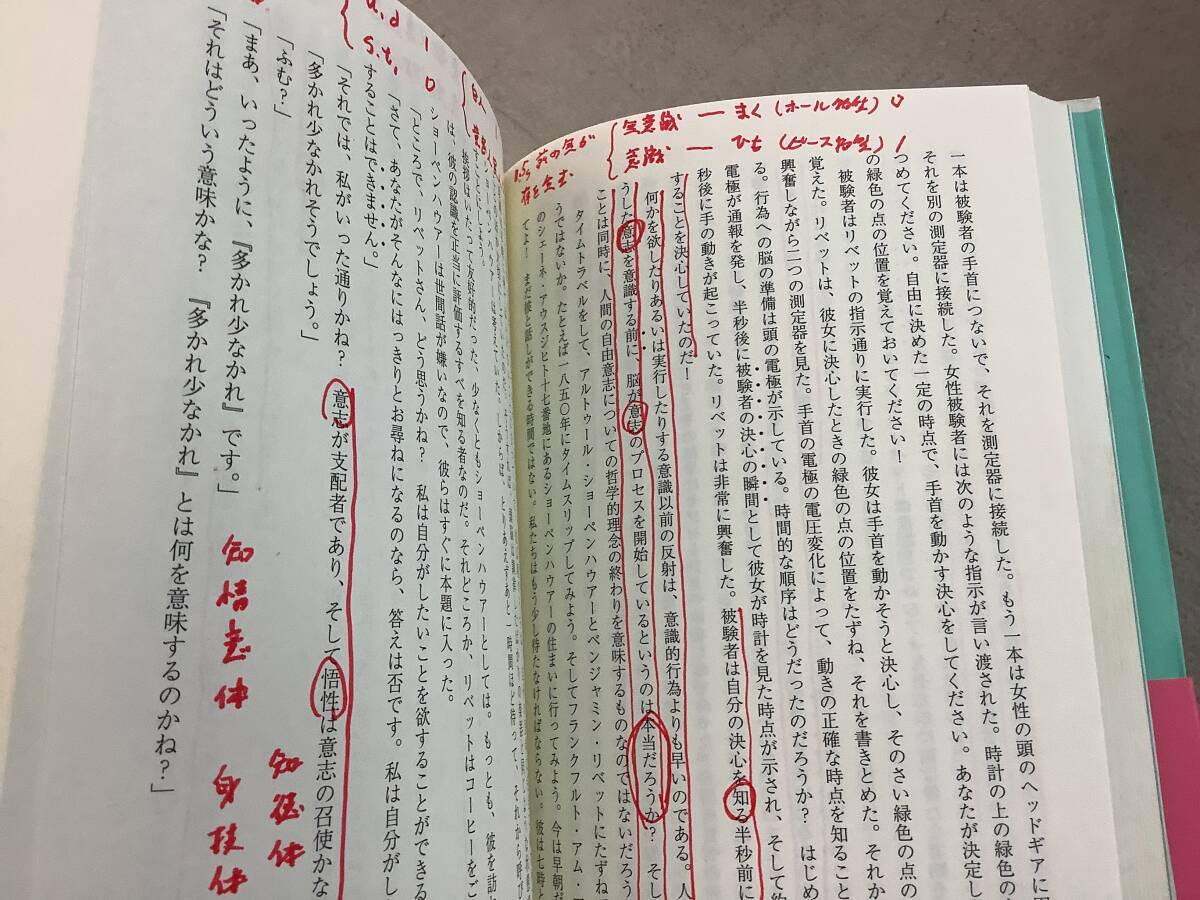 一本は被験者の手首につないで、それを測定器に接続した。もう一本は女性の頭のヘッドギアに
それを別の測定器に接続した。女性被験者には次のような指示が言い渡された。時計の上の緑色の
つめてください。自由に決めた一定の時点で、手首を動かす決心をしてください。あなたが決定し
の緑色の点の位置を覚えておいてください！
被験者はリベットの指示通りに実行した。彼女は手首を動かそうと決心し、そのさい緑色の点の
覚えた。リベットは、彼女に決心したときの緑色の点の位置をたずね、それを書きとめた。それか
興奮しながら二つの測定器を見た。手首の電極の電圧変化によって、動きの正確な時点を知ること
る。行為への脳の準備は頭の電極が示している。時間的な順序はどうだったのだろうか？　はじめ
電極が通報を発し、半秒後に被験者の決心の瞬間として彼女が時計を見た時点が示され、そして約
秒後に手の動きが起こっていた。リベットは非常に興奮した。被験者は自分の決心を知る半秒前に
することを決心していたのだ！
何かを欲したりあるいは実行したりする意識以前の反射は、意識的行為よりも早いのである。人
うした意志を意識する前に、脳が意志のプロセスを開始しているというのは本当だろうか？　そし
ことは同時に、人間の自由意志についての哲学的理念の終わりを意味するものなのではないだろう
タイムトラベルをして、アルトゥール・ショーペンハウアーとベンジャミン・リベットにたずね
うではないか。たとえば一八五〇年にタイムスリップしてみよう。そしてフランクフルト・アム・
のシェーネ・アウスジヒト十七番地にあるショーペンハウアーの住まいに行ってみよう。今は早朝だ
てよ！　まだ彼と話しができる時間ではない。私たちはもう少し待たなければならない。彼は七時と
無意識 ― まく（ホール
意識 ― ひも（ピース
挨拶はいたって友好的だった、少なくともショーペンハウアーとしては。もっとも、彼を訪
は、彼の認識を正当に評価するすべを知る者なのだ。それどころか、リベットはコーヒーをご
ショーペンハウアーは世間話が嫌いなので、彼らはすぐに本題に入った。
「ところで、リベットさん、どう思うかね？　私は自分がしたいことを欲することができる
「さて、あなたがそんなにはっきりとお尋ねになるのなら、答えは否です。私は自分がし
することはできません。」
「それでは、私がいった通りかね？　意志が支配者であり、そして悟性は意志の召使かな
「多かれ少なかれそうでしょう。」
「ふむ？」
「まあ、いったように、『多かれ少なかれ』です。」
「それはどういう意味かな？　『多かれ少なかれ』とは何を意味するのかね？」
s.t,